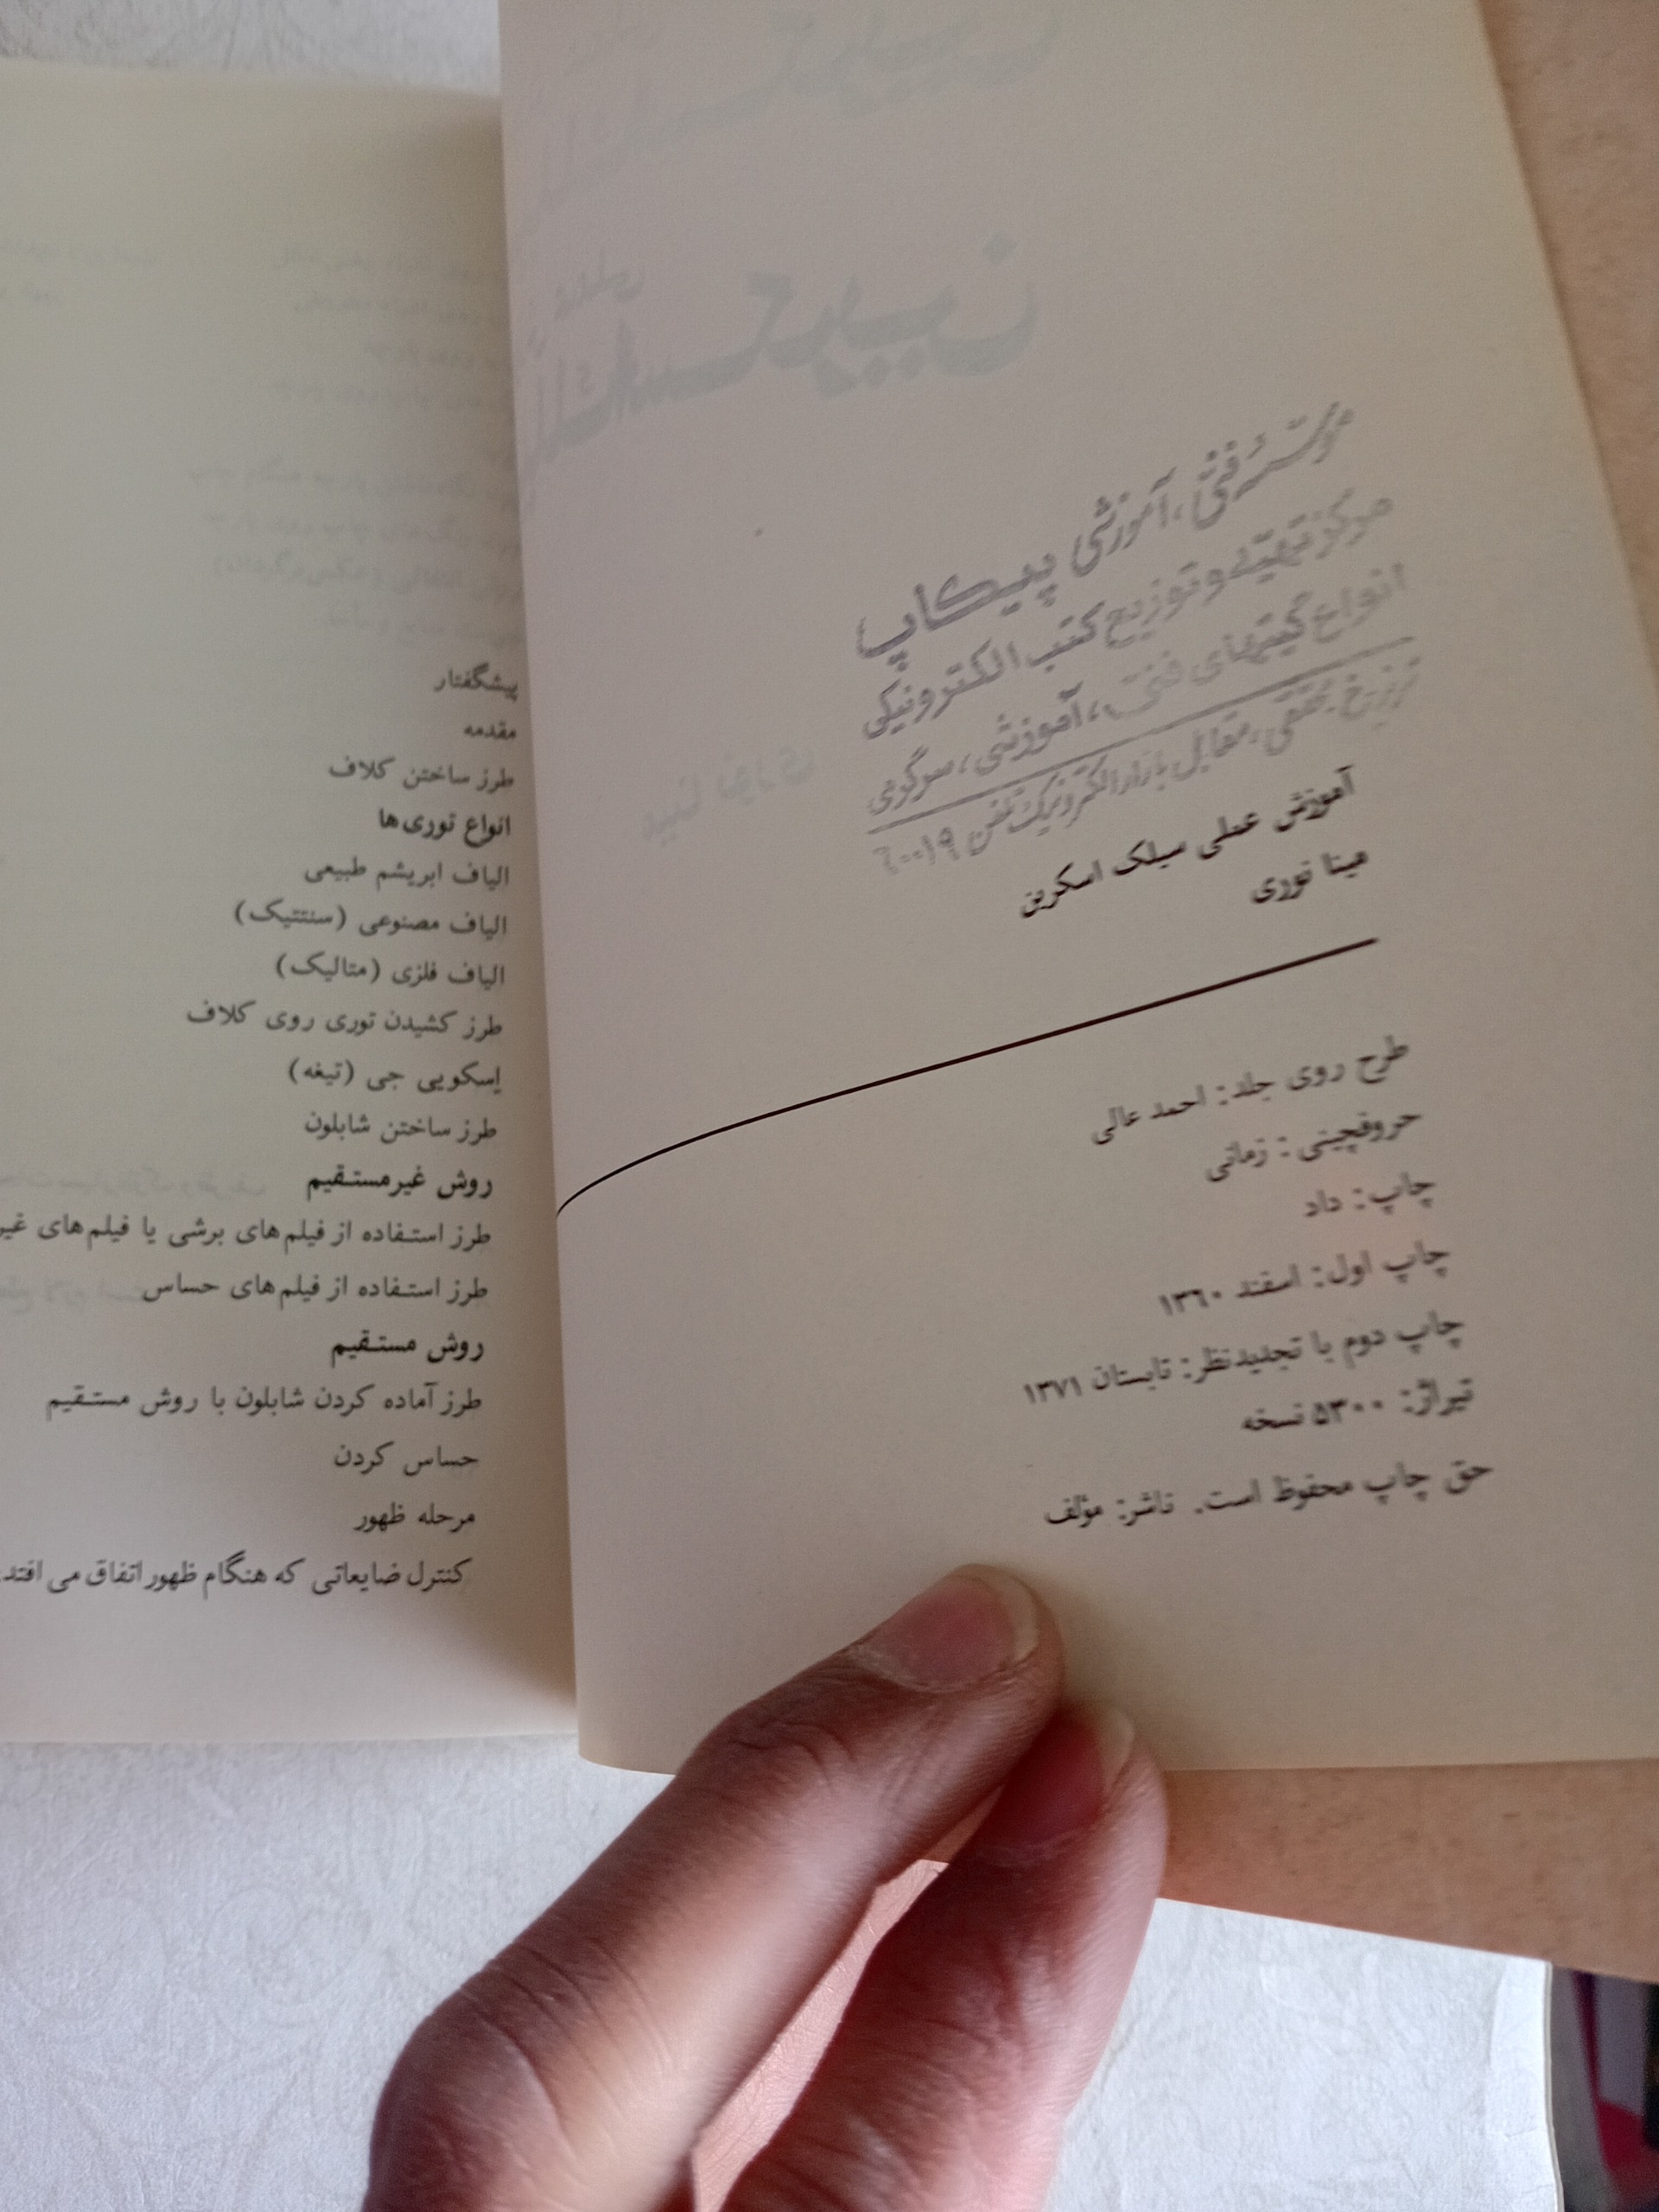 موسسه فنی، آموزشی پیکاپ
مرکز تهیه و توزیع کتب الکترونیکی
انواع کیتهای فنی، آموزشی، سرگرمی
مقابل بازار الکترونیک تلفن ٦٠٠١٩
آموزش عملی سیلک اسکرین
مینا نوری
طرح روی جلد: احمد عالی
حروفچینی: زمانی
چاپ: داد
چاپ اول: اسفند ١٣٦٠
چاپ دوم با تجدیدنظر: تابستان ١٣٧١
تیراژ: ۵٣٠٠ نسخه
حق چاپ محفوظ است. ناشر: مؤلف
پیشگفتار
مقدمه
طرز ساختن کلاف
انواع توری‌ها
الیاف ابریشم طبیعی
الیاف مصنوعی (سنتتیک)
الیاف فلزی (متالیک)
طرز کشیدن توری روی کلاف
اِسکویی جی (تیغه)
طرز ساختن شابلون
روش غیرمستقیم
طرز استفاده از فیلم‌های برشی یا فیلم‌های غیر
طرز استفاده از فیلم‌های حساس
روش مستقیم
طرز آماده کردن شابلون با روش مستقیم
حساس کردن
مرحله ظهور
کنترل ضایعاتی که هنگام ظهور اتفاق می افتد